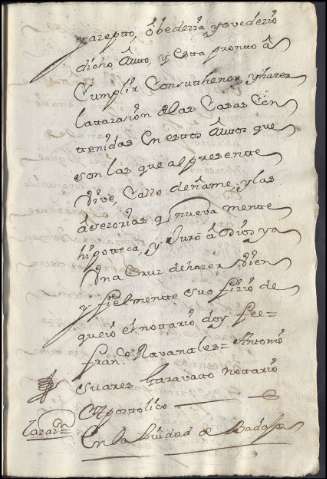 azepto, obedezia y obedezio
dicho Auto, y esta pronto â
Cumplir Con su thenor y hazer
la tazazion de las Casas Con
tenidas En estos Autos que
son las que al presente
Vive, Calle de ñame, y las
acsesorias q nuebamente
hipoteca, y Juró â Dios ya
Una Cruz de hazer bien
y fielmente su ofizio de
que io el notario doy fee=
Fran.co Ravanales= Antonio
Suares Garavato notario
Apostolico
tazaz.n
En la Ciudad de Badajoz